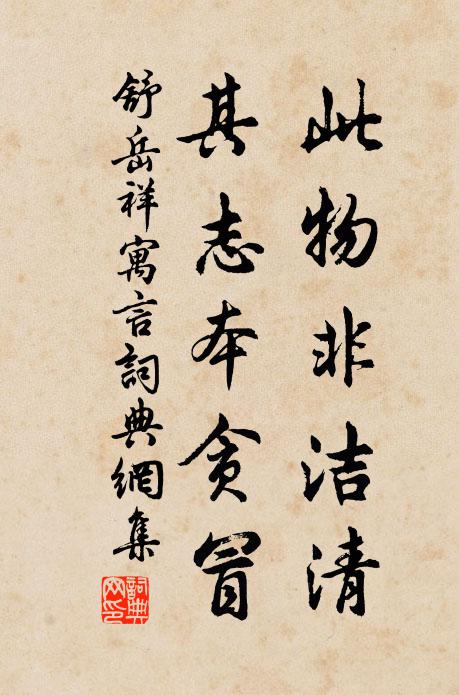 此物非洁清
其志本贪冒
舒岳祥寓言詞典網集
詞典网印